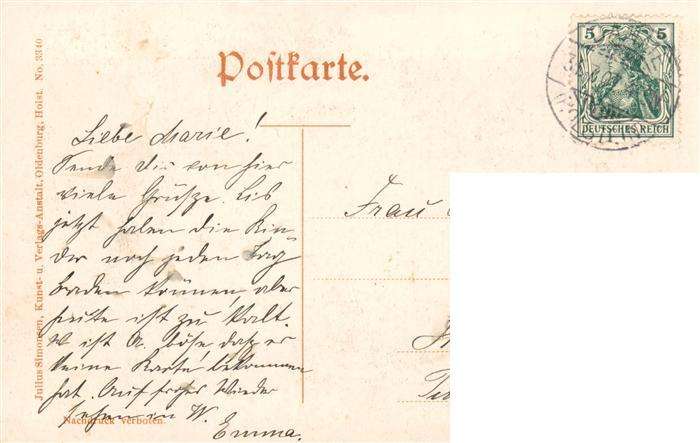 Postkarte.
5 5
DEUTSCHES REICH
Liebe Marie!
Sende Dir von hier
viele Grüsze. Bis
jetzt haben die Kin
der noch jeden Tag
baden können, aber
heute ist zu kalt.
W ist A. böse dasz er
keine Karte bekommen
hat. Auf frohes Wieder
sehen in W.
Emma.
Frau
Julius Simonsen, Kunst- u. Verlags-Anstalt, Oldenburg, Holst. No. 3340
Nachdruck verboten.